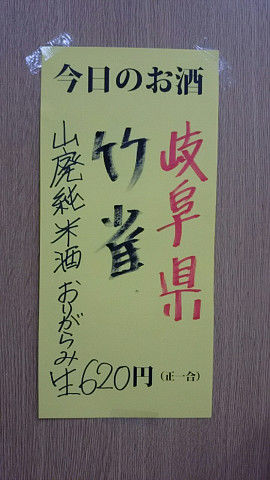 今日のお酒
岐阜県
竹雀
山廃純米酒 おりがらみ
生620円(正一合)